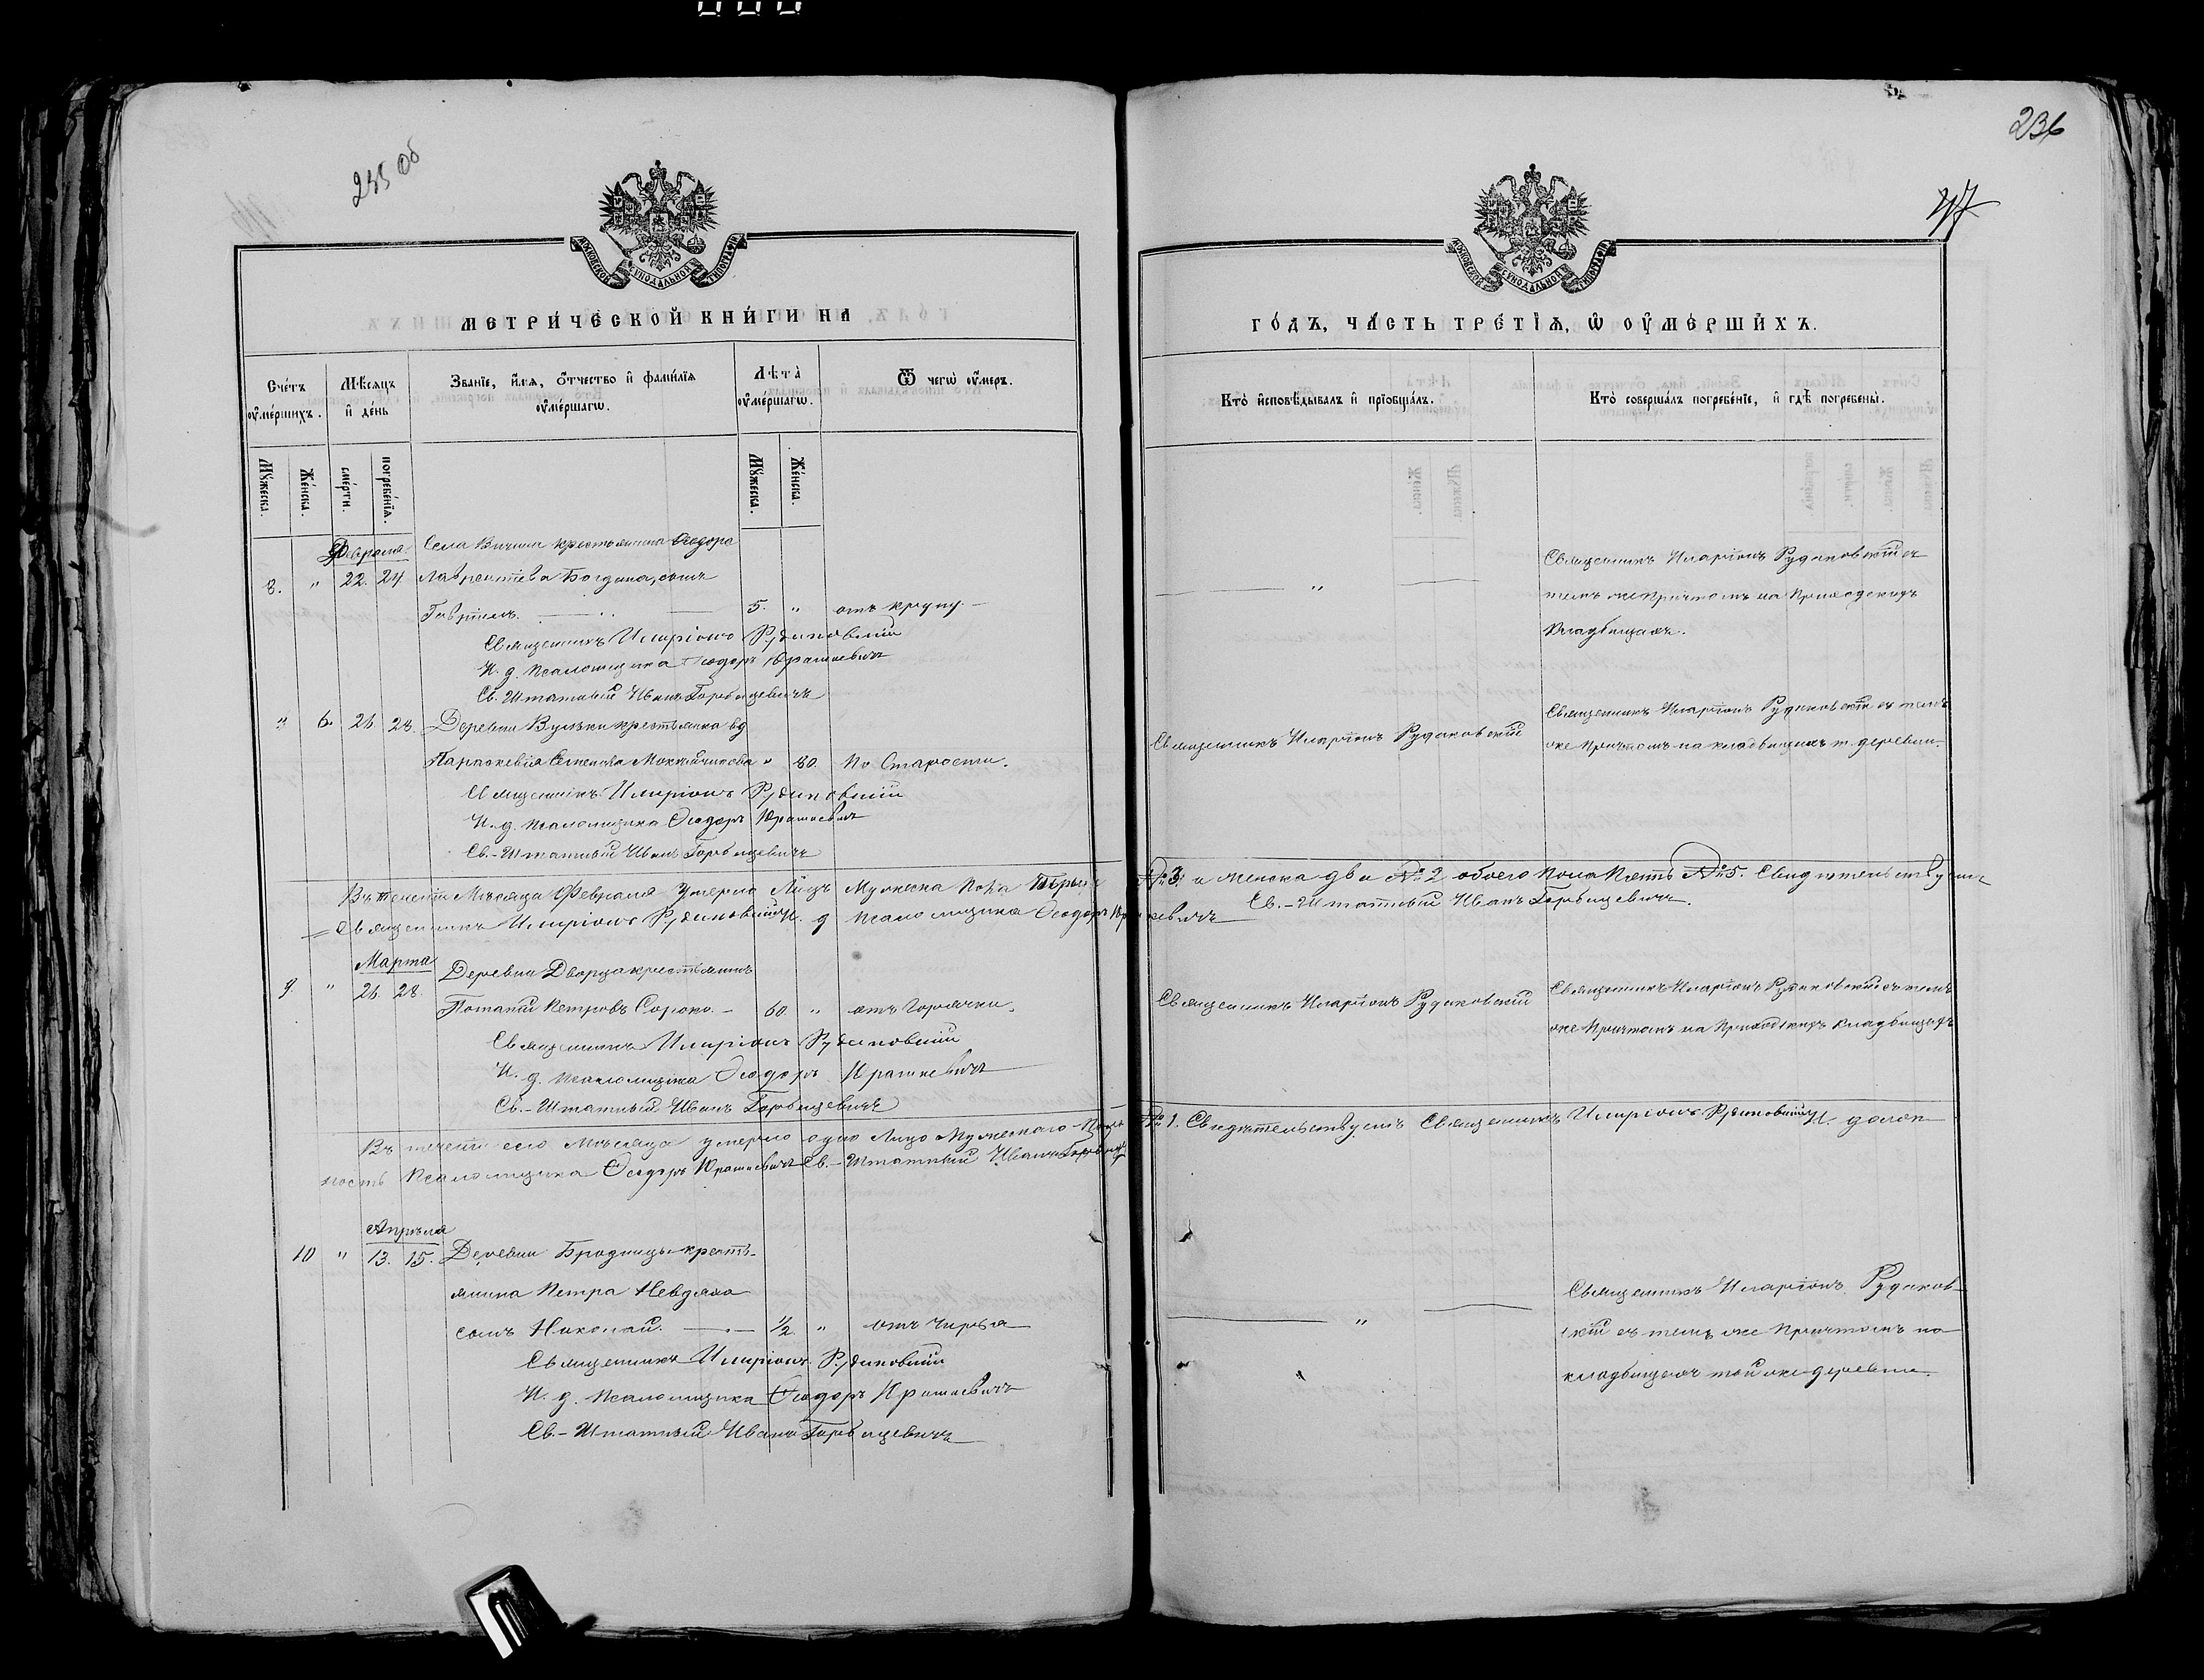 235 об
236
47
МЕТРИЧЕСКОЙ КНИГИ НА
ГОДЪ, ЧАСТЬ ТРЕТІѦ, Ѡ ОУМЕРШИХЪ.
Счетъ оумершихъ.
Мужеска.
Женска.
Мѣсяцъ и день
смерти.
погребенія.
Званіе, имя, отчество и фамилія оумершагѡ.
Лѣта оумершагѡ.
Мужеска.
Женска.
Ѿ чегѡ оумеръ.
Кто исповѣдывалъ и пріобщалъ.
Кто совершалъ погребеніе, и гдѣ погребены.
Февраля
Села Вичина крестьянина Ѳеодора
8. " 22. 24 Лаврентіева Богдана, сынъ
Гавріилъ. 5. " отъ крупу.
Священникъ Иларіонъ Рудаковскій съ
тѣмъ же причтомъ на приходскихъ
кладбищахъ.
Священникъ Иларіонъ Рудаковскій
И. д. Псаломщика Ѳеодоръ Юрашкевичъ
Св. Штатный Иванъ Горбацевичъ
" 6. 26. 28. Деревни Вульки крестьянка вд
Параскевія Семенова " 80. По Старости.
Священникъ Иларіонъ Рудаковскій
Священникъ Иларіонъ Рудаковскій съ тѣмъ
же причтомъ на кладбищахъ т. деревни.
Священникъ Иларіонъ Рудаковскій
И. д. Псаломщика Ѳеодоръ Юрашкевичъ
Св.-Штатный Иванъ Горбацевичъ
Въ теченіи Мѣсяца Февраля умерло Лицъ Мужеска пола №3. и женска два №2 обоего пола Пять №5. Свидѣтельствуемъ
Священникъ Иларіонъ Рудаковскій И. д Псаломщика Ѳеодоръ Юрашкевичъ Св.-Штатный Иванъ Горбацевичъ.
Марта
Деревни Дворца крестьянинъ
9. " 26. 28.
Потапій Петровъ Сорока. 60. " отъ Горячки.
Священникъ Иларіонъ Рудаковскій
Священникъ Иларіонъ Рудаковскій съ тѣмъ
же Причтомъ на Приходскихъ кладбищахъ
Священникъ Иларіонъ Рудаковскій
И. д. Псаломщика Ѳеодоръ Юрашкевичъ
Св.-Штатный Иванъ Горбацевичъ
Въ теченіи сего Мѣсяца умерло одно Лицо Мужескаго Пола №1. Свидѣтельствуемъ Священникъ Иларіонъ Рудаковскій И. долж
ность Псаломщика Ѳеодоръ Юрашкевичъ Св.-Штатный Иванъ Горбацевичъ
Апрѣля
10 " 13. 15. Деревни Бродницы крестья-
янина Петра Невдаха
сынъ Николай. 1/2. " отъ Чирья
Священникъ Иларіонъ Рудаков-
скій съ тѣмъ же Причтомъ на
кладбищахъ той же деревни.
Священникъ Иларіонъ Рудаковскій
И. д. Псаломщика Ѳеодоръ Юрашкевичъ
Св.-Штатный Иванъ Горбацевичъ